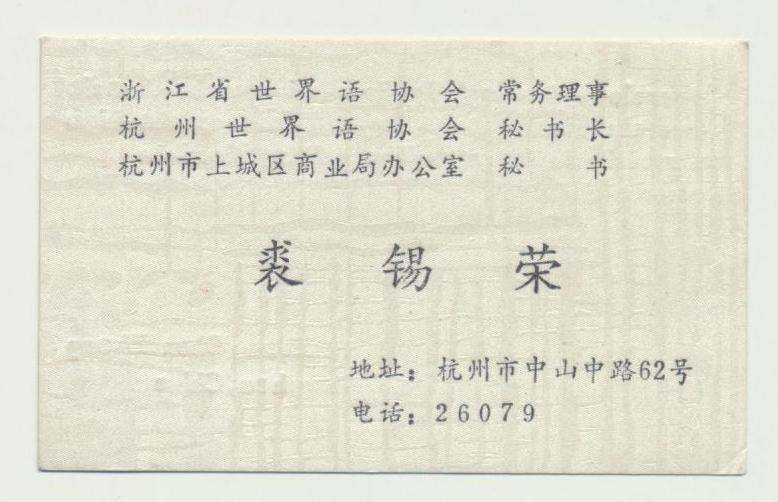 浙江省世界语协会 常务理事
杭州世界语协会 秘书长
杭州市上城区商业局办公室 秘书
裘锡荣
地址：杭州市中山中路62号
电话：26079